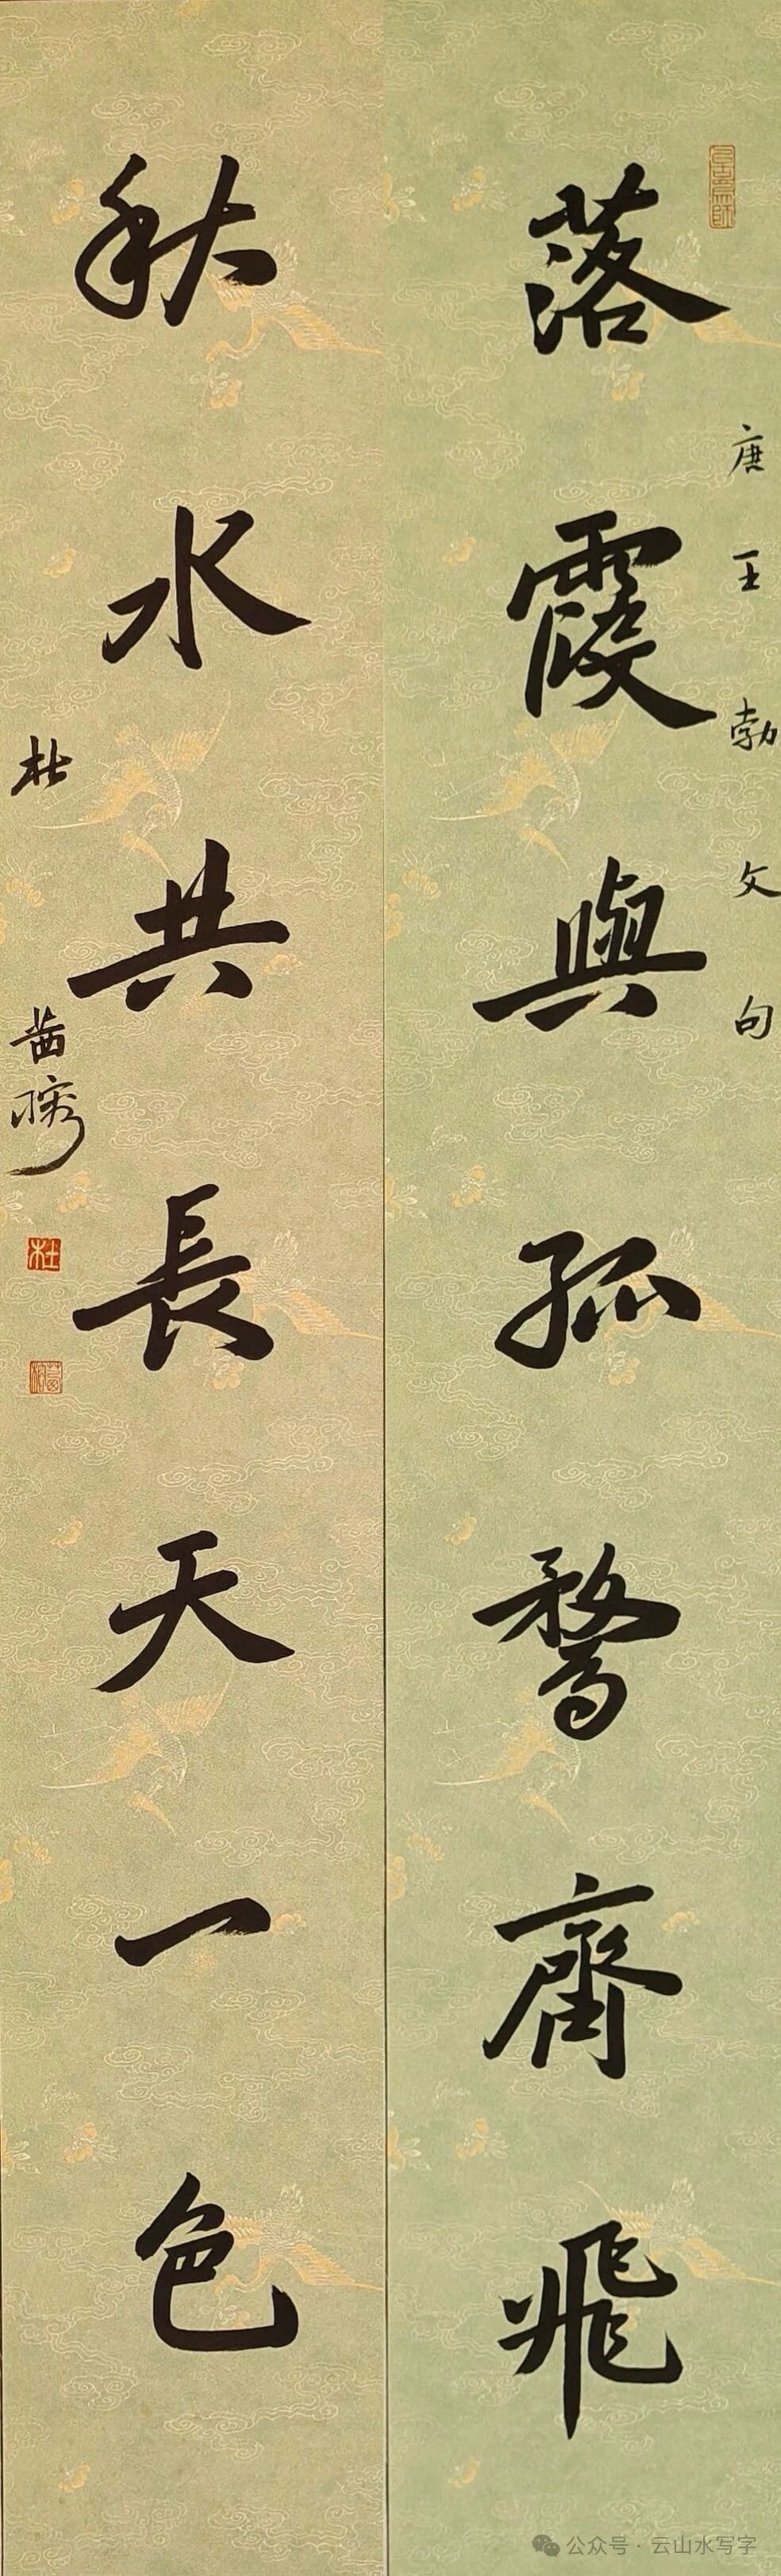 落霞與孤鶩齊飛
唐王勃文句
秋水共長天一色
杜
杜
公众号·云山水写字